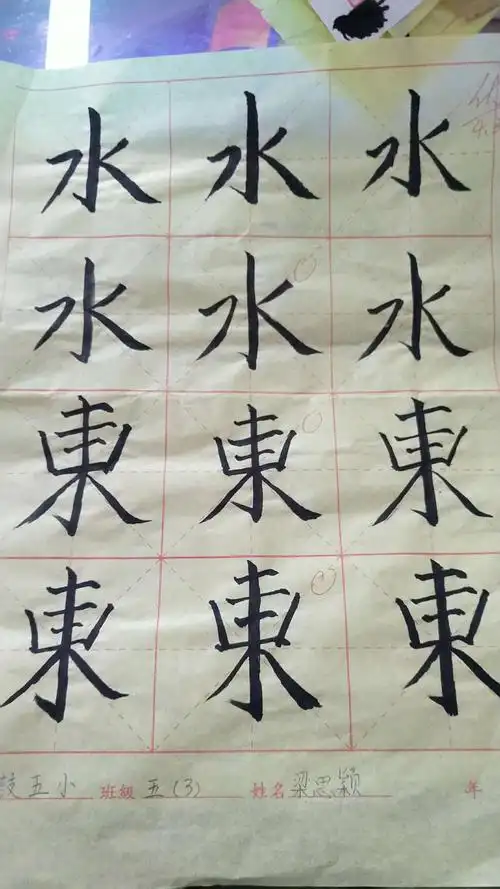 水 水 水
水 水 水
東 東 東
東 東 東
五小 班級 五(3) 姓名 梁思颖 年